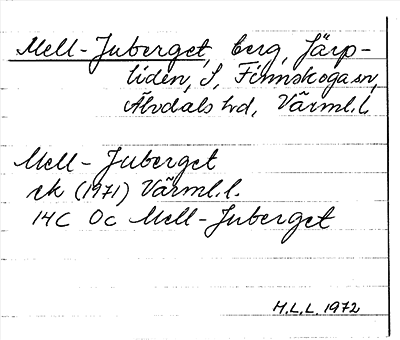 Mell-Juberget, berg, Järp-
liden, S, Finnskoga sn,
Älvdals hd, Värml. l.
Mell-Juberget
ek (1971) Värml. l.
14C 0c Mell-Juberget
H.L.L. 1972